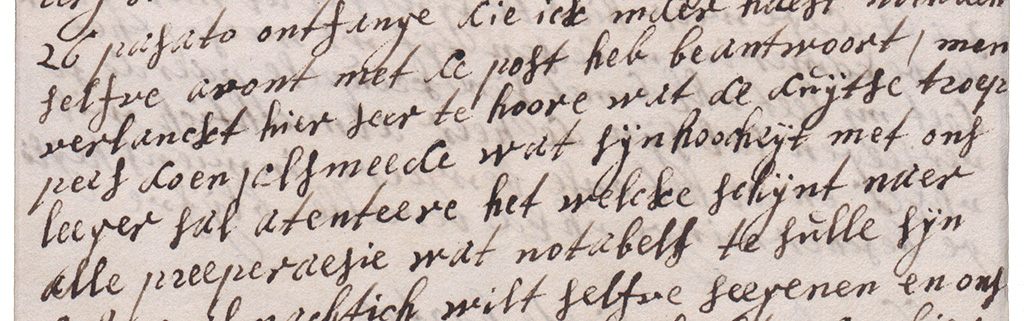 26 pasato ontfange die ick inder haest
selfve avont met de post heb beantwoort / men
verlanckt hier seer te hoore wat de duÿtse troep
pees doen / alsmeede wat sÿnhoocheÿt met ons
leeger sal atenteere het welcke schÿnt naer
alle preeperaesie wat notabels te sulle sÿn
wilt selfve seegenen en ons